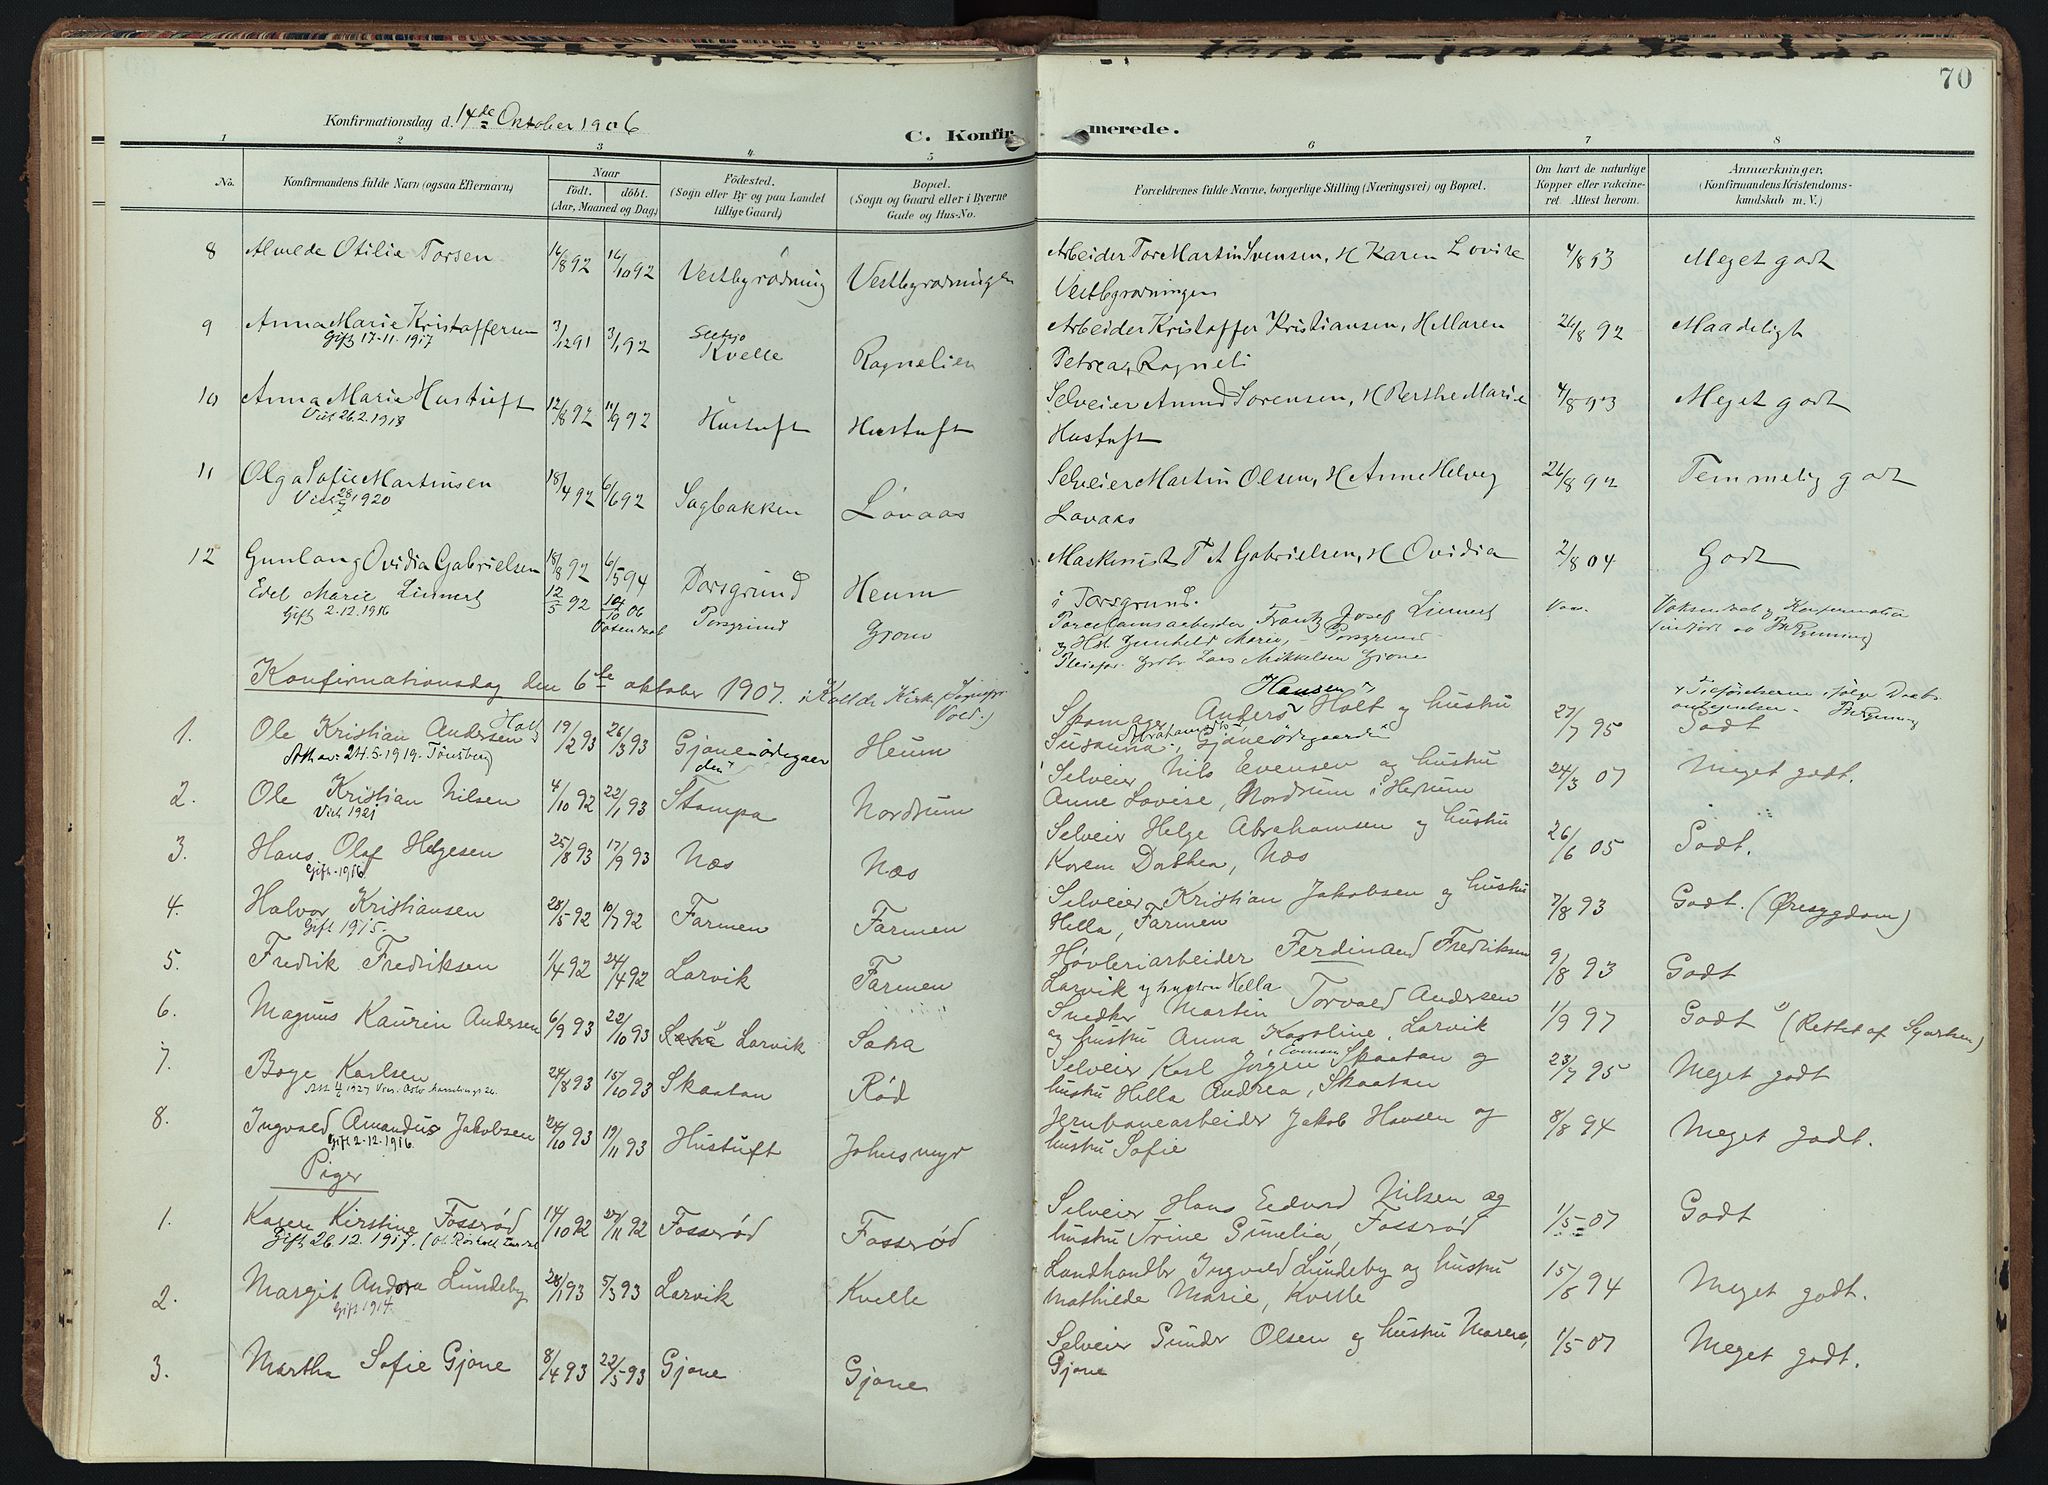 70
Konfirmationsdag d. 14de Oktober 1906
C. Konfirmerede.
1 2 3 4 5 6 7 8
No.
Konfirmandens fulde Navn (ogsaa Efternavn)
Naar
födt. döbt.
(Aar, Maaned og Dag.)
Födested.
(Sogn eller By og paa Landet
tillige Gaard)
Bopæl.
(Sogn og Gaard eller i Byerne
Gade og Hus-No.
Forældrenes fulde Navne, borgerlige Stilling (Næringsvei) og Bopæl.
Om havt de naturlige
Kopper eller vakcine-
ret. Attest herom.
Anmærkninger.
(Konfirmandens Kristendoms-
kundskab m. V.)
8 Almede Otilie Torsen 16/8 92 16/10 92 Vestbyrødning Vestbyrødningen Arbeider Tore Martin Svensen, H Karen Lovise 4/8 93 Meget godt
Vestbyrødningen
9 Anna Marie Kristoffersen 3/12 91 3/1 92 Kvelle Ragnelien Arbeider Kristoffer Kristiansen, H Maren 26/8 92 Maadeligt
Gift 17-11.1917
Petrea, Ragneli
10 Anna Marie Hustuft 12/8 92 11/9 92 Hustuft Hustuft Selveier Amund Sørensen, H Berthe Marie 4/8 93 Meget godt
Viet 26.2.1918
Hustuft
11 Olga Sofie Martinsen 18/4 92 6/6 92 Sagbakken Løvaas Selveier Martin Olsen, H Anne Helvig 26/8 92 Temmelig godt
Viet 28/7 1920
Løvaas
12 Gunlaug Ovidia Gabrielsen 18/8 92 6/5 94 Porsgrund Heum Maskinist T A Gabrielsen, H Ovidia 2/8 04 Godt
i Porsgrund.
Edel Marie Linnert 12/5 92 10/10 06 Porsgrund Gjone Porcelænsarbeider Frantz Josef Linnert Vacc.
Gift 2.12.1916
og Hst. Gunhild Marie, Porsgrund
Pleiefor. Grbr. Lars Mikkelsen Gjone
Konfirmationsdag den 6te oktober 1907. i Kvelde Kirke
1. Ole Kristian Andersen Holt 19/2 93 26/3 93 Gjoneødegaarden Heum Skomager Anders Hansen Holt og hustru 27/7 95 Godt
Att av 24.5.1919. Tönsberg
Susanna Abrahamsdtr, Gjoneødegaarden
2. Ole Kristian Nilsen 4/10 92 22/1 93 Stampa Nordrum Selveier Nils Evensen og hustru 24/3 07 Meget godt.
Viet 1921
Anne Lovise, Nordrum i Hedrum
3. Hans Olaf Helgesen 25/8 93 17/9 93 Næs Næs Selveier Helge Abrahamsen og hustru 26/6 05 Godt.
Gift 1916
Karen Dorthea, Næs
4. Halvor Kristiansen 28/5 92 10/7 92 Farmen Farmen Selveier Kristian Jakobsen og hustru 7/8 93 Godt. (Øresygdom)
Gift 1915.
Hella, Farmen
5. Fredrik Fredriksen 1/4 92 24/4 92 Larvik Farmen Høvleriarbeider Ferdinand Fredriksen 9/8 93 Godt
Larvik og hustru Hella
6. Magnus Kaurin Andersen 6/9 93 22/10 93 Larvik Saha Snedker Martin Torvald Andersen 1/9 97 Godt
og hustru Anna Karoline, Larvik
7. Boye Karlsen 24/8 93 15/10 93 Skaatan Rød Selveier Karl Jørgen Evensen Skaatan og 23/7 95 Meget godt
hustru Hella Andrea, Skaatan
8. Ingvald Amandus Jakobsen 24/10 93 19/11 93 Hustuft Johnsmyr Jernbanearbeider Jakob Hansen og 8/8 94 Meget godt.
Gift 2-12.1916.
hustru Sofie
Piger
1. Karen Kirstine Fosserød 14/10 92 27/11 92 Fosserød Fosserød Selveier Hans Edvard Nilsen og 1/5 07 Godt
Gift 26.12.1917.
hustru Trine Gunelia, Fosserød
2. Margit Andora Lundeby 28/1 93 5/3 93 Larvik Kvelle Landhandler Ingvald Lundeby og hustru 15/8 94 Meget godt.
Gift 1914.
Mathilde Marie, Kvelle
3. Martha Sofie Gjone 8/4 93 22/5 93 Gjone Gjone Selveier Gunder Olsen og hustru Maren, 1/5 07 Meget godt.
Gjone